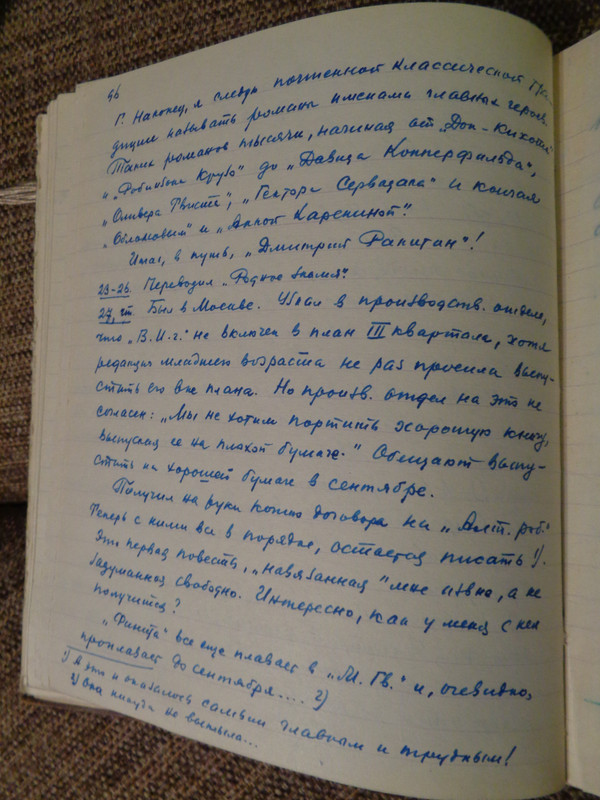 96
Г. Наконец, я следую почтенной классической тра-
диции называть романы именами главных героев.
Таких романов тысячи, начиная от „Дон-Кихота",
„Робинзона Крузо" до „Давида Копперфильда",
„Оливера Твиста", „Гектора Сервадака" и кончая
„Обломовым" и „Анной Карениной".
Итак, в путь, „Дмитрий Рапитан"!
23-26. Переводил „Родное знамя".
27, чт. Был в Москве. Узнал в производств. отделе,
что „В.И.г." не включен в план III квартала, хотя
редакция младшего возраста не раз просила выпу-
стить его вне плана. Но произв. отдел на это не
согласен: „Мы не хотим портить хорошую книгу,
выпуская ее на плохой бумаге." Обещают выпу-
стить на хорошей бумаге в сентябре.
Получил на руки копию договора на „Алт. роб."
Теперь с ними все в порядке, остается писать 1).
Это первая повесть, „навязанная" мне извне, а не
задуманная свободно. Интересно, как у меня с ней
получится?
„Финита" все еще плавает в „М. Гв." и, очевидно,
проплавает до сентября.... 2)
1) А это и оказалось самым главным и трудным!
2) Она никуда не выплыла...